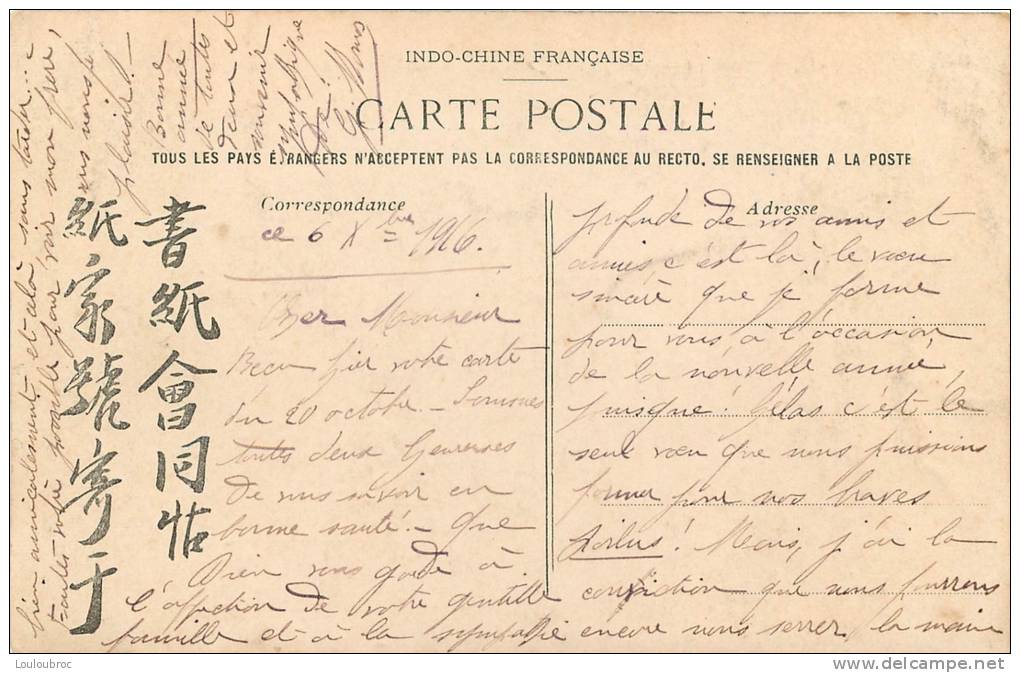 INDO-CHINE FRANÇAISE
CARTE POSTALE
TOUS LES PAYS ÉTRANGERS N'ACCEPTENT PAS LA CORRESPONDANCE AU RECTO, SE RENSEIGNER A LA POSTE
Correspondance
Adresse
書紙會同帖
紙家號寄于
ce 6 Xbre 1916.
Cher Monsieur
Reçu hier votre carte
du 20 octobre - Sommes
toutes deux heureuses
de vous savoir en
bonne santé - Que
Dieu vous garde à
l'affection de votre gentille
famille et à la sympathie
profonde de vos amis et
amies, c'est là, le vœu
sincère que je forme
pour vous à l'occasion
de la nouvelle année,
puisque! hélas c'est le
seul vœu que nous puissions
former pour nos braves
poilus! Mais, j'ai la
conviction que nous pourrons
encore nous serrer la main
bien amicalement, et cela sans tarder...
toutes votre possible pour voir mon frère,
plaisir! -
Bonne
année
de toutes
deux et
souvenir
sympathique
Louloubroc
delcampe.net